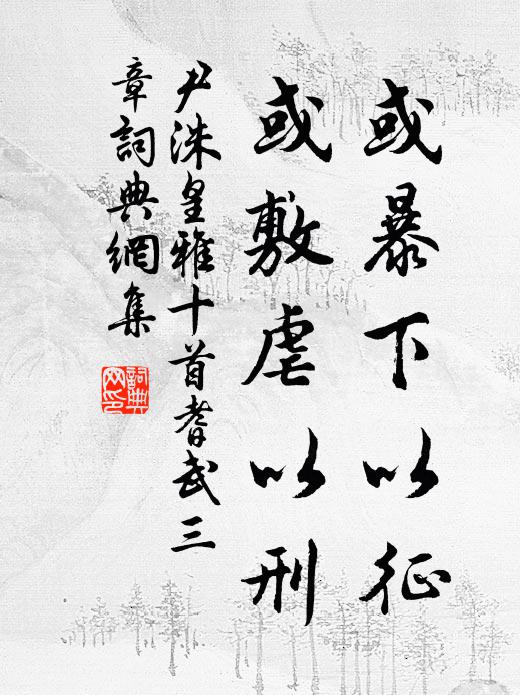 或暴下以征
或敷虐以刑
尹洙皇雅十首耆武三
章詞典網集
詞典
网印